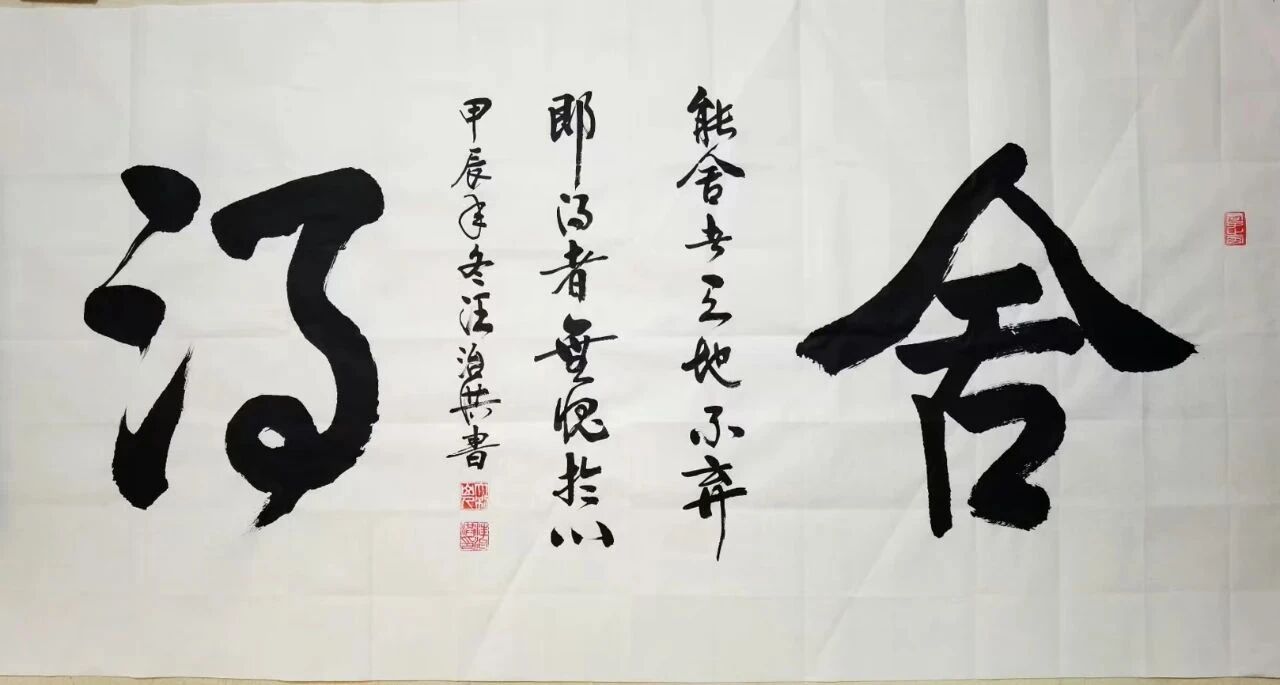 舍
能舍去天地不弃
即得者無愧於心
甲辰年冬汪治共書
得